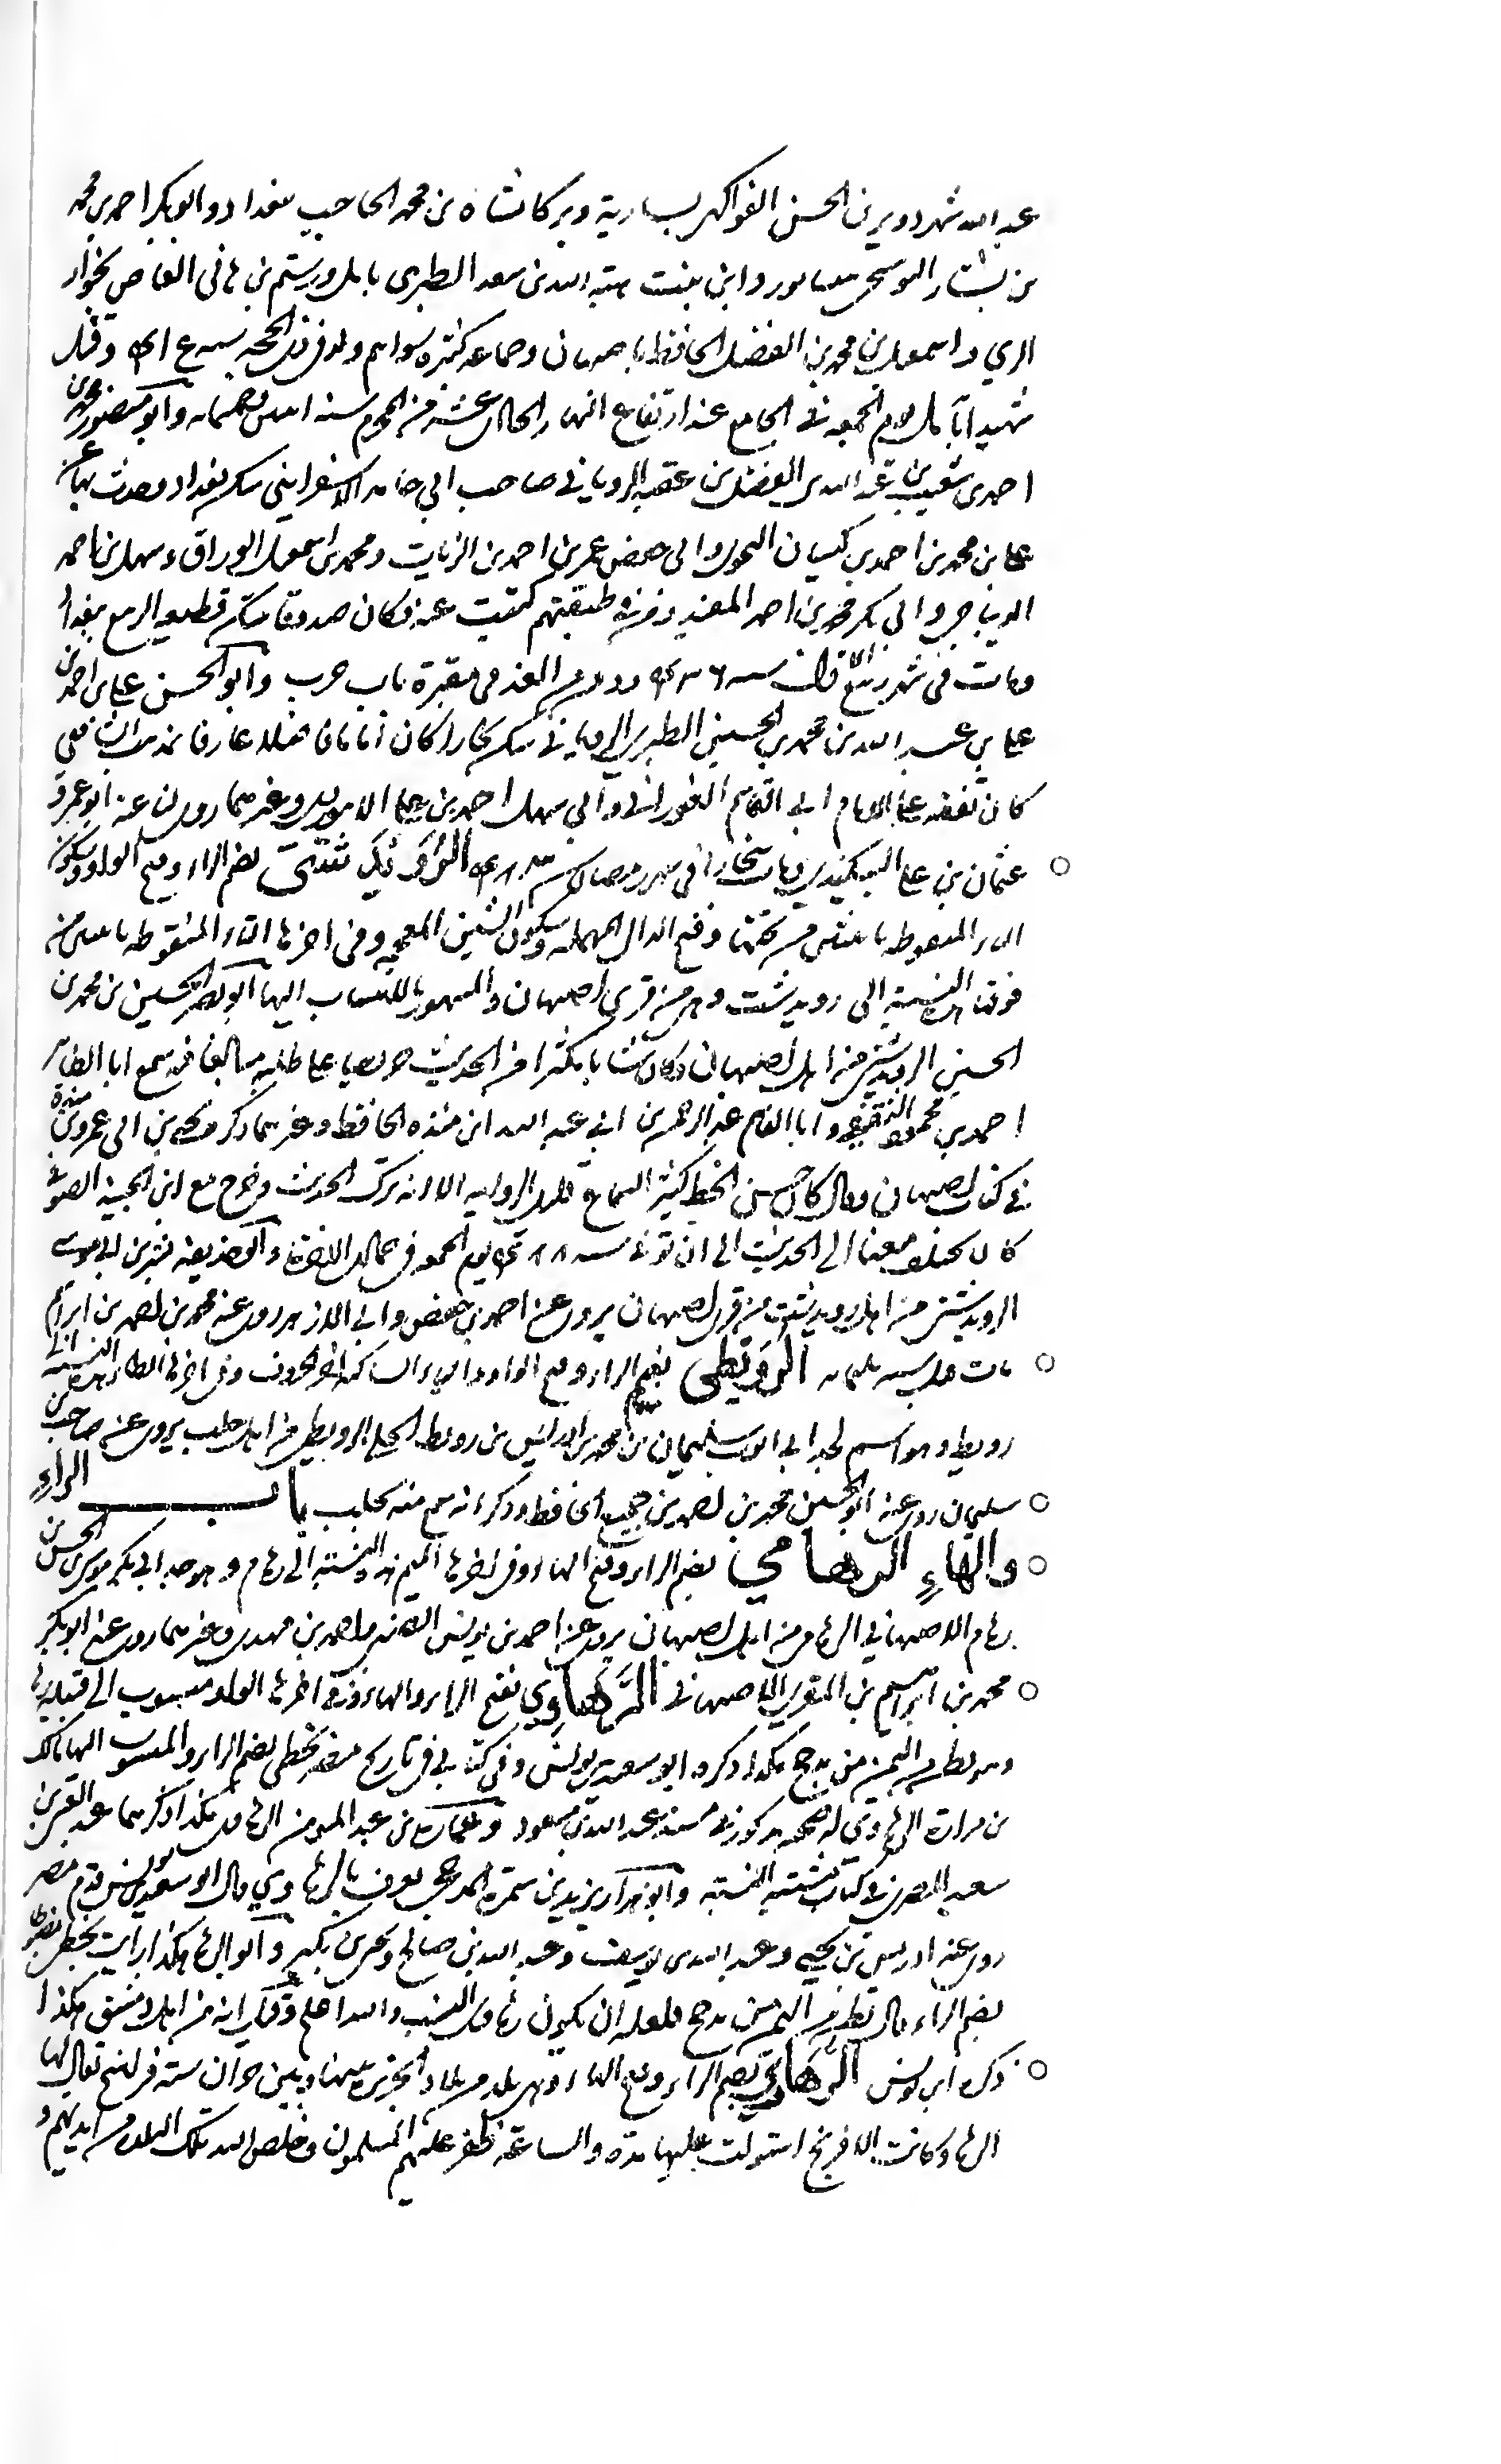 عبد الله شهردوير بن الحسن الفواكهي بسارية وبركانشاه بن محمد الحاجب ببغداد وابو بكر احمد بن محمد
بن بشار البوسنجي بنيسابور وابن بنت هبة الله بن سعد الطبري بآمل ورستم بن هانى القاضي بخوار
الري واسمعيل بن محمد بن الفضل الحافظ باصبهان وجماعة كثيرة سواهم ولد في ذي الحجه سنه وقتل
شهيدا بآمل يوم الجمعه في الجامع عند ارتفاع النهار الحادى عشر من المحرم سنه اثنتين وخمسمايه وابو منصور محمد بن
احمد بن شعيب بن عبد الله بن الفضل بن عقبه الروياني صاحب ابي حامد الاسفرايني سكن بغداد وحدث بها عن
علي بن محمد بن احمد بن كيسان النحوي وابي حفص عمر بن احمد بن الزيات ومحمد بن اسمعيل الوراق وسهل بن احمد
الديباجي وابي بكر محمد بن احمد المفيد ومن في طبقتهم كتبت عنه وكان صدوقا يسكن قطيعه الربيع ببغداد
ومات في شهر ربيع الاول سنه ودفن من الغد في مقبرة باب حرب وابو الحسن علي بن احمد بن
علي بن عبد الله بن محمد بن الحسين الطبري الروياني سكن بخارا كان اماما فاضلا عارفا بمذهب الشافعي
كان تفقه علي الامام ابي القاسم الفوراني وابي سهل احمد بن علي الابيوردي وغيرهما روى لنا عنه ابو عمرو
عثمان بن علي البيكندي ومات ببخارا في شهر رمضان سنه الرُوَيْدَشْتى بضم الراء وفتح الواو وسكون
الياء المنقوطه باثنتين من تحتها وفتح الدال المهمله وسكون الشين المعجمه وفي اخرها التاء المنقوطه باثنتين من
فوقها هذه النسبة الى رويدشت وهي من قرى اصبهان والمشهور بالانتساب اليها ابو الحسين بن محمد بن
الحسين الرويدشتي من اهل اصبهان وكان شابا مكثرا من الحديث حريصا علي طلبه مبالغا فيه سمع ابا الطاهر
احمد بن محمود الثقفي وابا القاسم عبد الرحمن بن ابي عبد الله ابن منده الحافظ وغيرهما ذكره يحيى بن ابي عمرو بن منده
في كتاب اصبهان وقال كان حسن الخط كثير السماع قليل الروايه الا انه ترك الحديث وخرج مع ابن الصوفي
كان يختلف معنا الى الحديث الى ان توفي سنه يوم الجمعه في جمادى الاخرة وابو حذيفه بن ابي موسى
الرويدشتي من اهل رويدشت من قرى اصبهان يروى عن احمد بن حفص وابي الازهر روى عنه محمد بن احمد بن ابراهيم
مات قبل سنه ثلثمايه الرُوَيْطى بضم الراء وفتح الواو والياء الساكنه اخر الحروف وفي اخرها الطاء هذه النسبه الى
رويط وهو اسم لجد ابي ايوب سليمان بن محمد بن ادريس بن رويط الحلبي الرويطي من اهل حلب يروى عن صاحب بن
سليمان روى عنه ابو الحسين محمد بن احمد بن جميع الحافظ وذكر انه سمع منه بحلب باب الراءِ
والهاءِ الرُهامي بضم الراء وفتح الهاء وفي اخرها الميم هذه النسبة الى رهام وهو جد ابي بكر موسى بن الحسن بن
رهام الاصبهاني الرهامي من اهل اصبهان يروى عن احمد بن يونس الضبي واحمد بن مهدى وغيرهما روى عنه ابو بكر
محمد بن ابراهيم بن المقري الاصبهاني الرَّهاوي بفتح الراء والهاء وفي اخرها الواو منسوب الى قبيله رها
وهو بطن من اليمن من مذحج هكذا ذكره ابو سعيد بن يونس وفي كتابي في تاريخ مصر بخطي بضم الراء والمنسوب اليها مالك
بن مرارة الرهاوي له صحبه مذكور في مسند عبد الله بن مسعود وعماره بن عبد المومن الرهاوي هكذا ذكرهما عبد الغني بن
سعيد المصري في كتاب مشتبه النسبه وابو هزار يزيد بن سمرة المذحجي يعرف بالرهاوي قال ابو سعيد بن يونس قدم مصر
روى عنه ادريس بن يحيى وعبد الله بن يوسف وعبد الله بن صالح ويحيى بن بكير وابو الرها هكذا رايت بخطي
بضم الراء وقال بطن من اليمن من مذحج فلعله ان يكون رهاوى النسب والله اعلم وقيل انه من اهل دمشق هكذا
ذكره ابن يونس الرُهاوي بضم الراء وفتح الهاء وهى بلده من بلاد الجزيره بينها وبين حران سته فراسخ يقال لها
الرها وكانت الافرنج استولت عليها مده والساعه ظفر عليهم المسلمون وخلص الله تلك البلده من ايديهم و